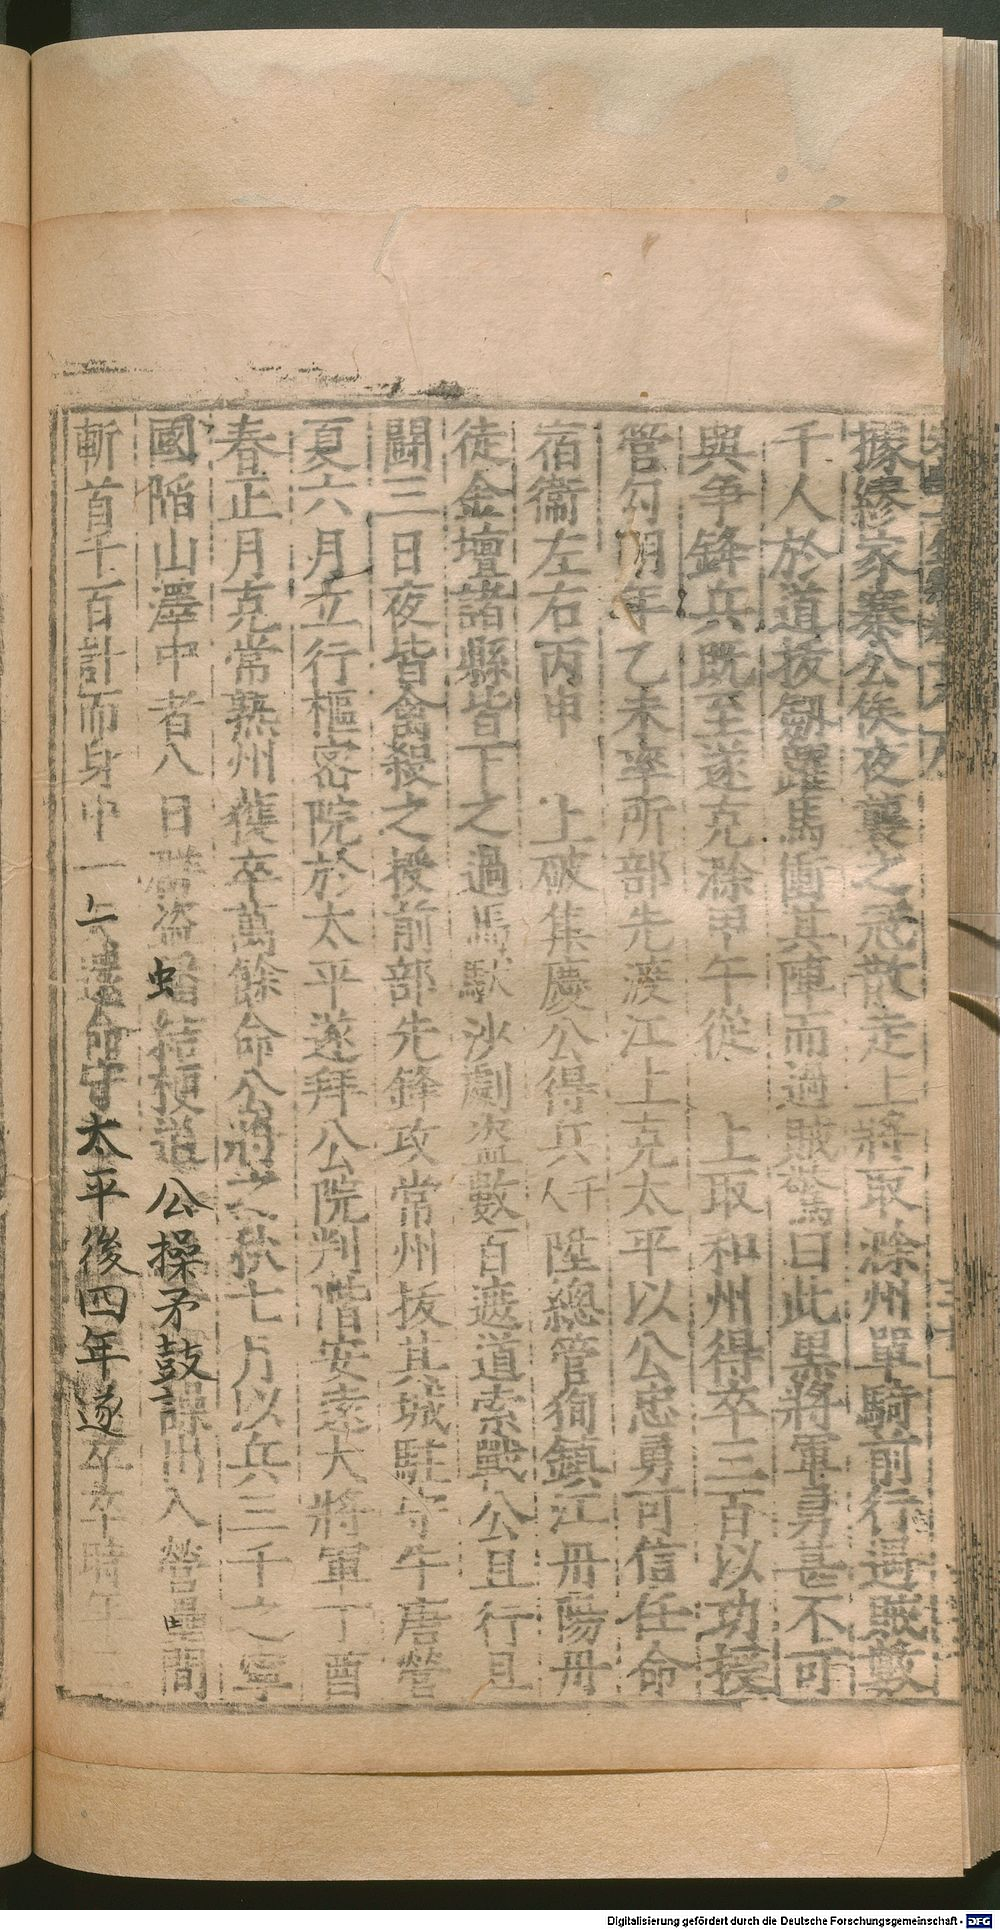 據繆家寨公侯夜襲之寇散走上將取滁州單騎前行遇賊數
千人於道拔劒躍馬衝其陣而過賊驚曰此黑將軍勇甚不可
與爭鋒兵既至遂克滁甲午從 上取和州得卒三百以功授
管勾明年乙未率所部先渡江上克太平以公忠勇可信任命
宿衞左右丙申 上破集慶公得兵千人陞總管徇鎮江丹陽丹
徒金壇諸縣皆下之過馬馱沙劇盗數百遮道索戰公且行且
鬪三日夜皆禽殺之授前部先鋒攻常州拔其城駐守牛唐營
夏六月立行樞密院於太平遂拜公院判階安遠大將軍丁酉
春正月克常熟州獲卒萬餘命公將之秋七月以兵三千之寧
國陷山澤中者八日群盗 蚍結梗道公操矛鼓 譟出入營壘間
斬首千百計而身中一 還命守太平後四年遂卒卒時年
Digitalisierung gefördert durch die Deutsche Forschungsgemeinschaft - DFG